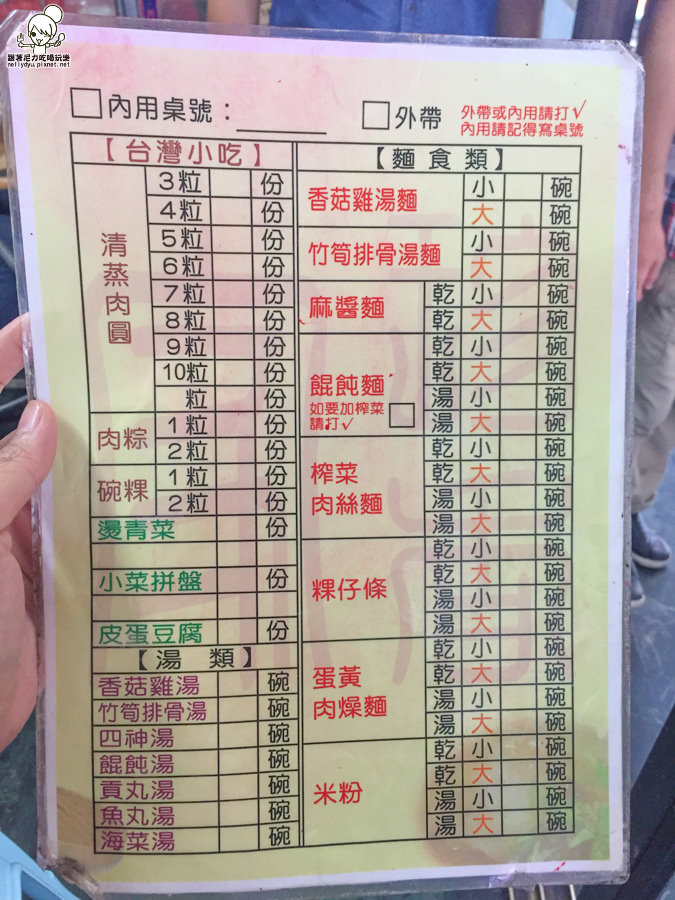 跟著尼力吃喝玩樂
nellydyu.pixnet.net
內用桌號：
外帶
外帶或內用請打√
內用請記得寫桌號
【台灣小吃】
清蒸肉圓
3粒 份
4粒 份
5粒 份
6粒 份
7粒 份
8粒 份
9粒 份
10粒 份
粒 份
肉粽
1粒 份
2粒 份
碗粿
1粒 份
2粒 份
燙青菜 份
小菜拼盤 份
皮蛋豆腐 份
【湯 類】
香菇雞湯 碗
竹筍排骨湯 碗
四神湯 碗
餛飩湯 碗
貢丸湯 碗
魚丸湯 碗
海菜湯 碗
【麵食類】
香菇雞湯麵
小 碗
大 碗
竹筍排骨湯麵
小 碗
大 碗
麻醬麵
乾 小 碗
乾 大 碗
餛飩麵
如要加榨菜
請打√
乾 小 碗
乾 大 碗
湯 小 碗
湯 大 碗
榨菜
肉絲麵
乾 小 碗
乾 大 碗
湯 小 碗
湯 大 碗
粿仔條
乾 小 碗
乾 大 碗
湯 小 碗
湯 大 碗
蛋黃
肉燥麵
乾 小 碗
乾 大 碗
湯 小 碗
湯 大 碗
米粉
乾 小 碗
乾 大 碗
湯 小 碗
湯 大 碗